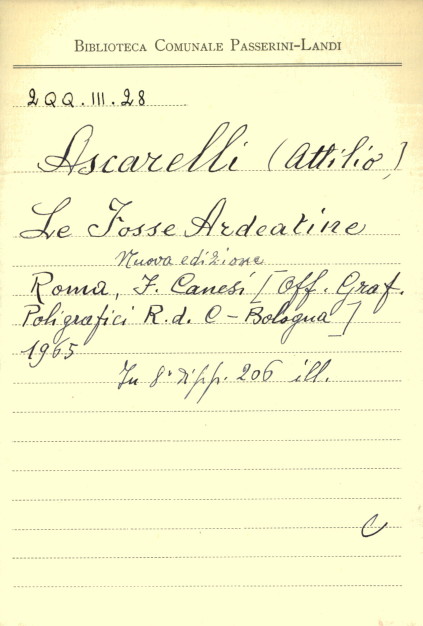 BIBLIOTECA COMUNALE PASSERINI-LANDI
2QQ.III.28
Ascarelli (Attilio)
Le Fosse Ardeatine
Nuova edizione
Roma, F. Canesi [Off. Graf.
Poligrafici R.d.C - Bologna]
1965
In 8° di pp. 206 ill.
C